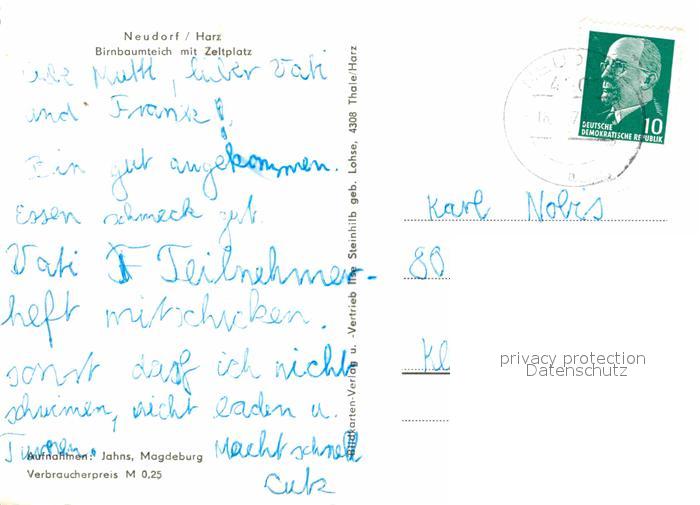 Neudorf / Harz
Birnbaumteich mit Zeltplatz
liebe Mutti, lieber Vati
und Frank!
Bin gut angekommen.
Essen schmeck gut.
Vati Teilnehmer-
heft mitschicken.
sonst darf ich nicht
schwimen, nicht baden u.
Macht schnell
Aufnahmen: Jahns, Magdeburg
Verbraucherpreis M 0,25
Bildkarten-Verlag u. -Vertrieb Ilse Steinhilb geb. Lohse, 4308 Thale/Harz
DEUTSCHE
DEMOKRATISCHE REPUBLIK
10
Karl Nobis
80
Kl
privacy protection
Datenschutz